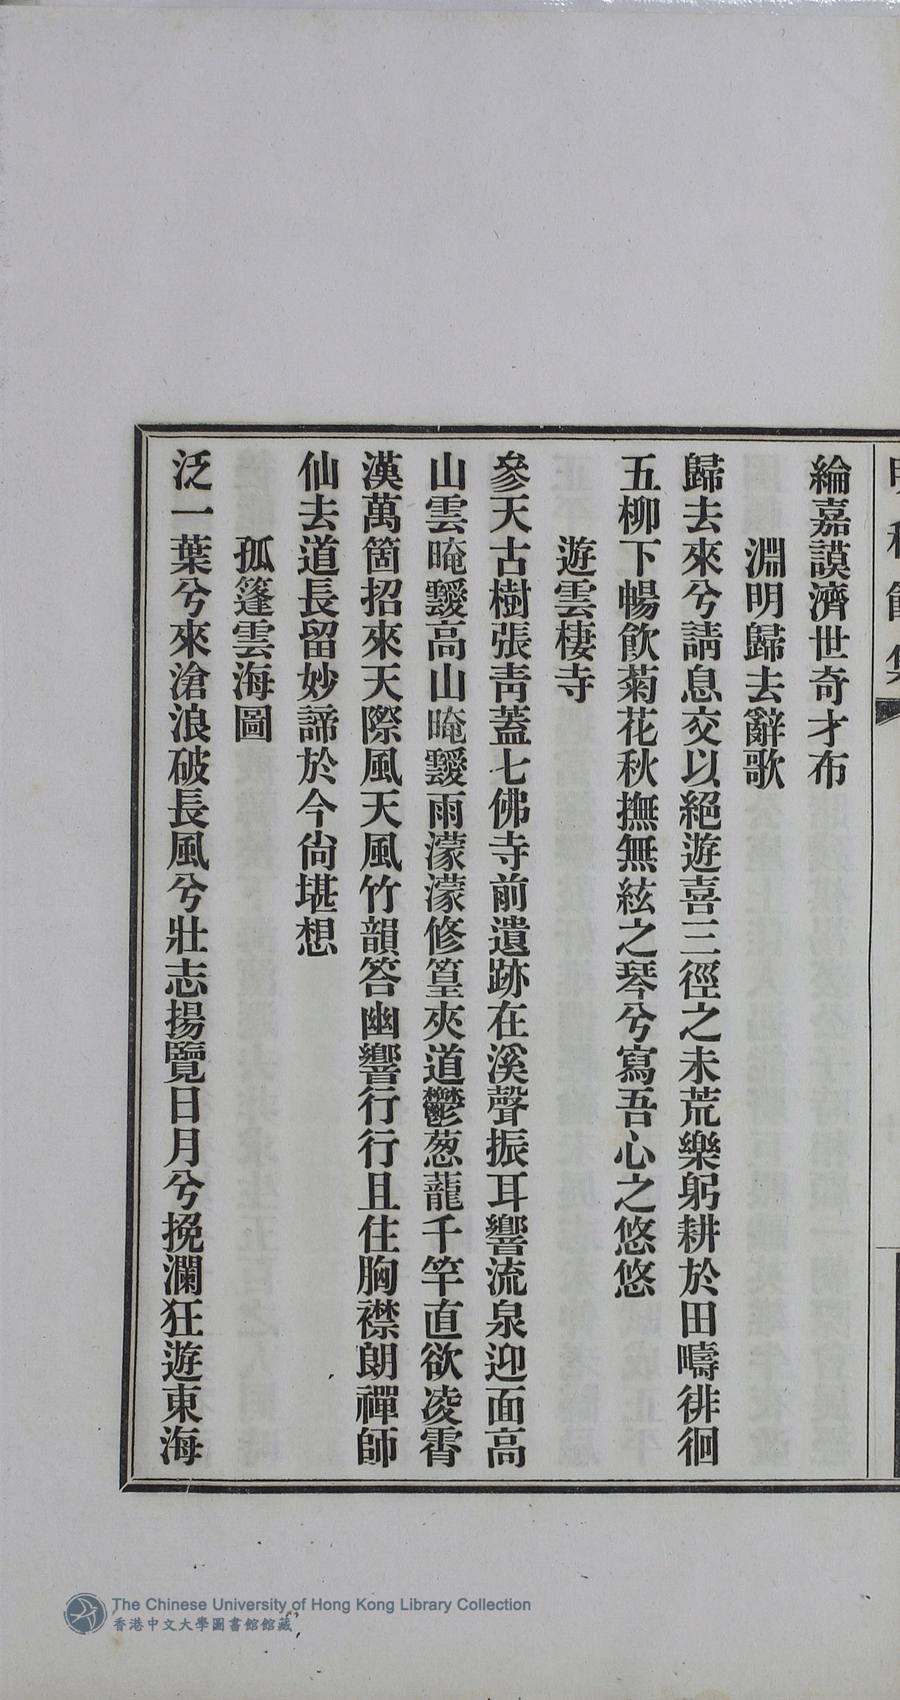 綸嘉謨濟世奇才布
淵明歸去辭歌
歸去來兮請息交以絕遊喜三徑之未荒樂躬耕於田疇徘徊
五柳下暢飲菊花秋撫無絃之琴兮寫吾心之悠悠
遊雲棲寺
參天古樹張靑蓋七佛寺前遺跡在溪聲振耳響流泉迎面高
山雲晻靉高山晻靉雨濛濛修篁夾道鬱葱蘢千竿直欲凌霄
漢萬箇招來天際風天風竹韻答幽響行行且住胸襟朗禪師
仙去道長留妙諦於今尙堪想
孤篷雲海圖
泛一葉兮來滄浪破長風兮壯志揚覽日月兮挽瀾狂遊東海
The Chinese University of Hong Kong Library Collection
香港中文大學圖書館館藏